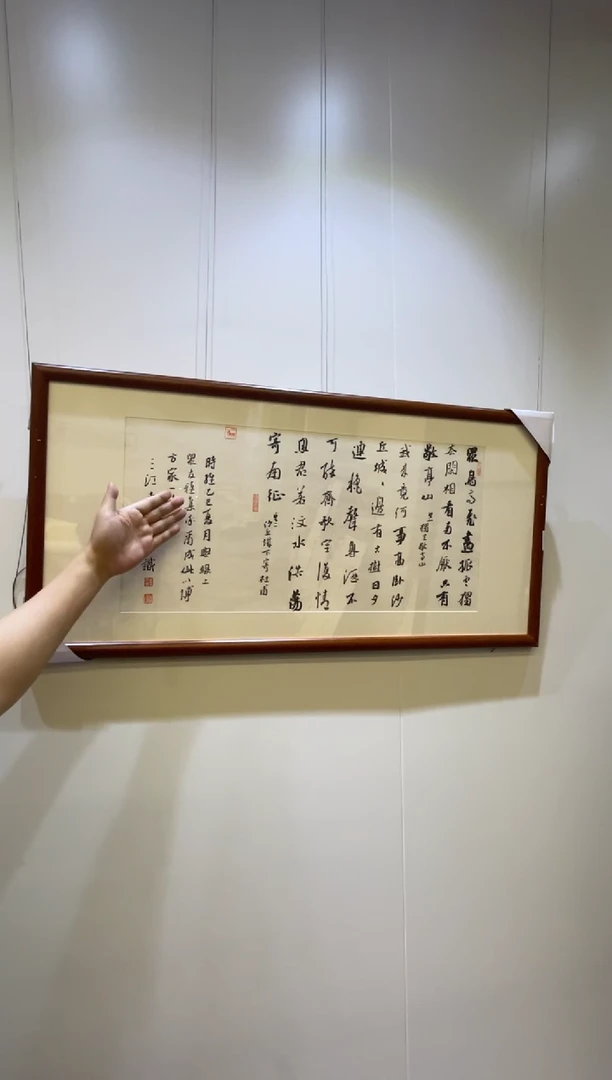 眾鳥高飛盡孤雲獨
去閑相看兩不厭只有
敬亭山 獨坐敬亭山
我來竟何事高臥沙
丘城、邊有古樹日夕
連秋聲魯酒不
可醉齊歌空復情
思君若汶水浩蕩
寄南征 沙丘城下寄杜甫
乙巳夏月 上
成此以博
方家一
三江